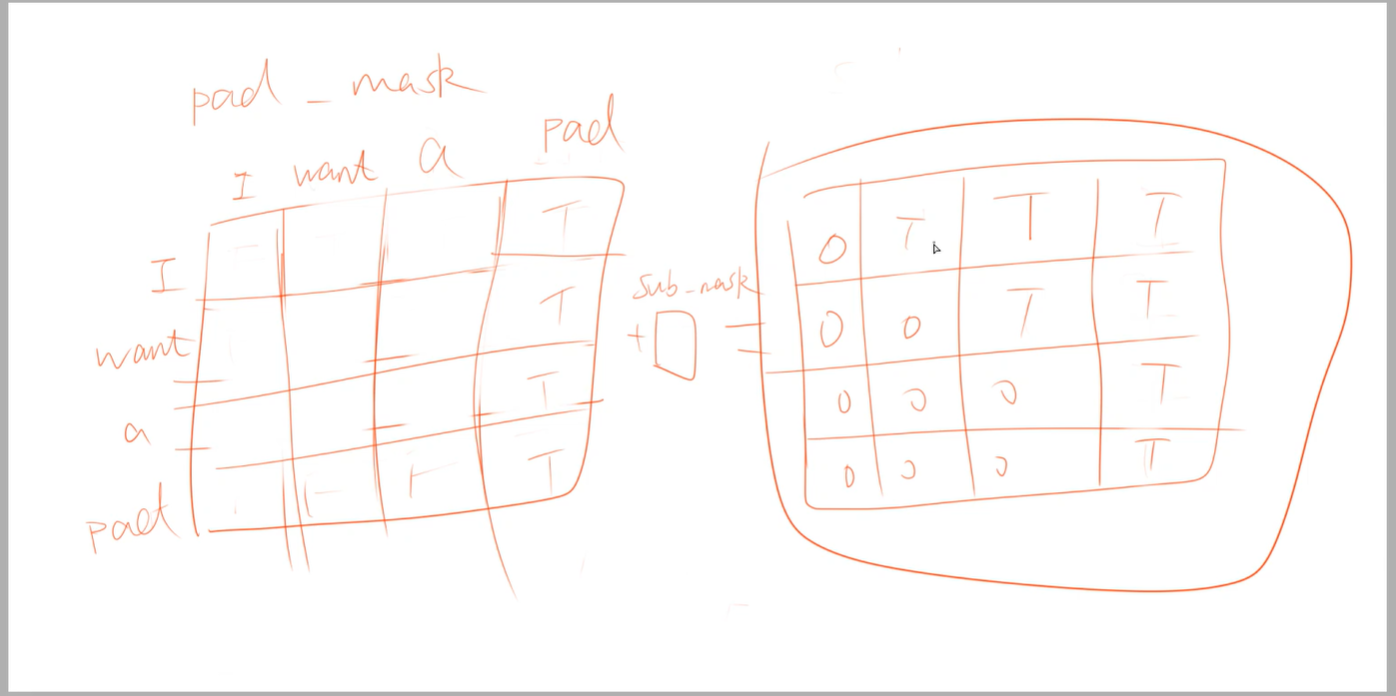 pad_mask
I want a pad
I T
want T
a T
pad T
+ sub_mask =
0 T T T
0 0 T T
0 0 0 T
0 0 0 T